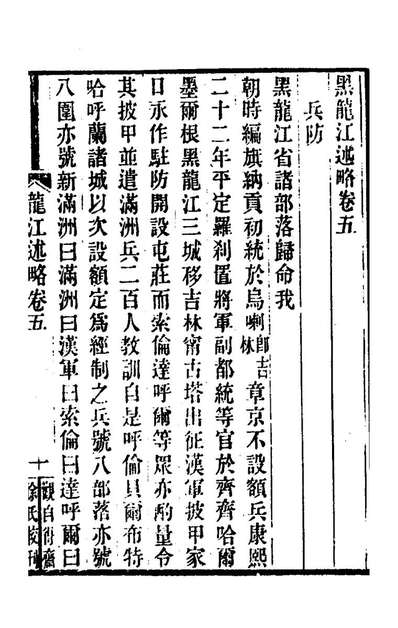 黑龍江述略卷五
兵防
黑龍江省諸部落歸命我
朝時編旗納貢初統於烏喇即吉林章京不設額兵康熙
二十二年平定羅刹置將軍副都統等官於齊齊哈爾
墨爾根黑龍江三城移吉林甯古塔出征漢軍披甲家
口永作駐防開設屯莊而索倫達呼爾等眾亦酌量令
其披甲並遣滿洲兵二百人教訓自是呼倫貝爾布特
哈呼蘭諸城以次設額定爲經制之兵號八部落亦號
八圍亦號新滿洲曰滿洲曰漢軍曰索倫曰達呼爾曰
龍江述略卷五
十
觀自得齋
徐氏校刊